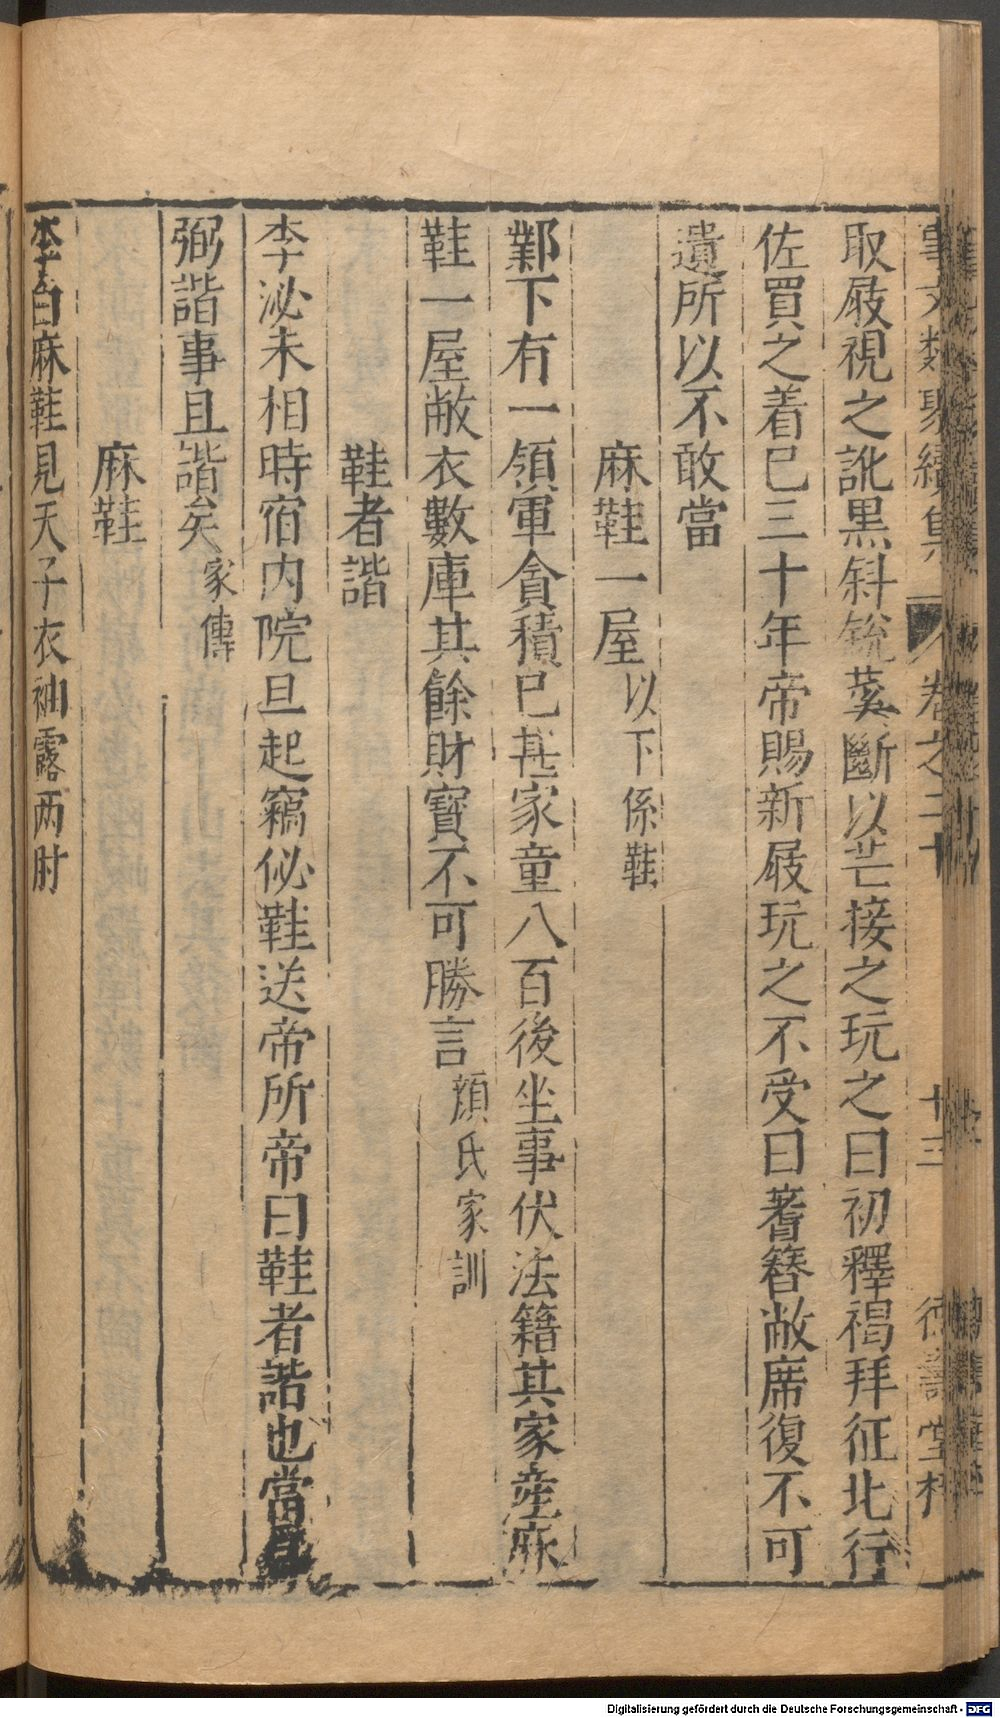 事文類聚續集 卷之二十 十三 德壽堂梓
取屐視之訛黑斜銳蒵斷以芒接之玩之曰初釋褐拜征北行
佐買之着已三十年帝賜新屐玩之不受曰蓍簪敝席復不可
遺所以不敢當
麻鞋一屋以下係鞋
鄴下有一領軍貪積已甚家童八百後坐事伏法籍其家產麻
鞋一屋敝衣數庫其餘財寶不可勝言顏氏家訓
鞋者諧
李泌未相時宿內院旦起竊佖鞋送帝所帝曰鞋者諧也當
弼諧事且諧矣家傳
麻鞋
麻鞋見天子衣袖露两肘
Digitalisierung gefördert durch die Deutsche Forschungsgemeinschaft - DFG